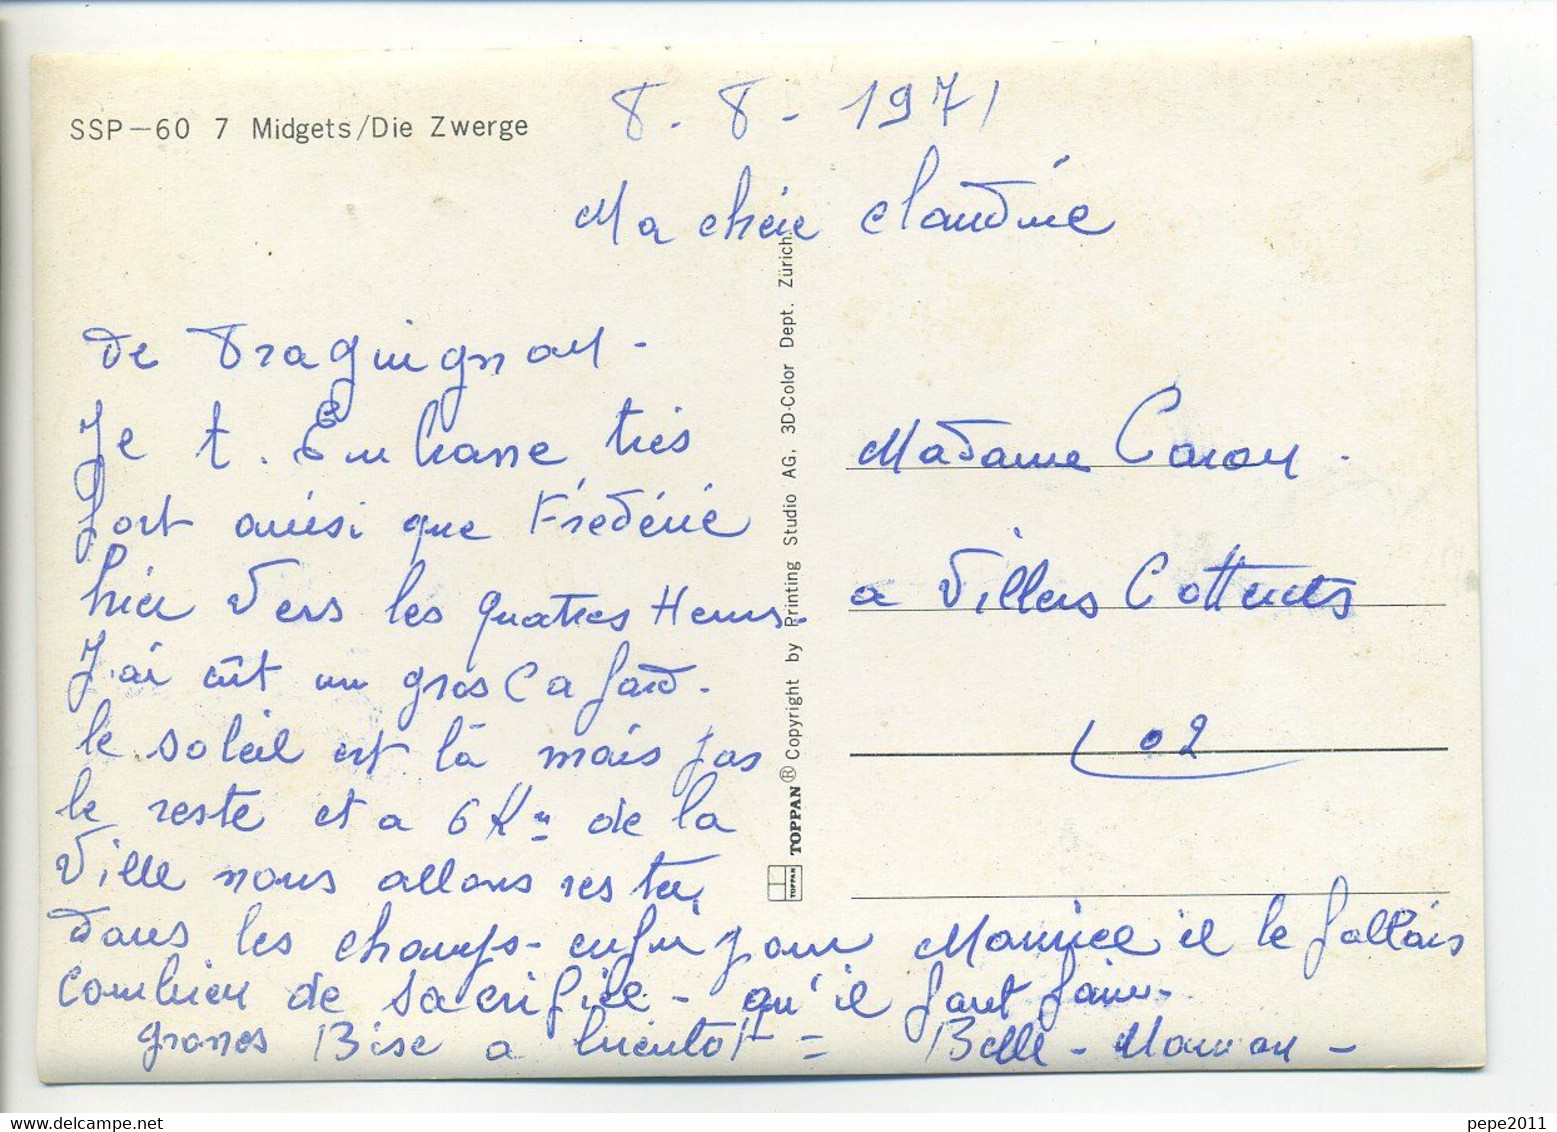 SSP-60 7 Midgets/Die Zwerge
8.8-1971
Ma chére Claudine
de Draguignan-
Je t. Embrasse tres
fort ainsi que Frédéric
hier vers les quatres Heures-
J'ai eût un gros Cafard.
le soleil est là mais pas
le reste et a 6 Km de la
Ville nous allons rester
dans les champs- enfin pour Maurice il le fallais
Combien de sacrifice- qu'il faut faire-
grosses Bise a bientôt = Belle-Maman-
Madame Caron.
a Villers Cotterets
02
TOPPAN
TOPPAN® Copyright by Printing Studio AG, 3D-Color Dept. Zürich.
pepe2011